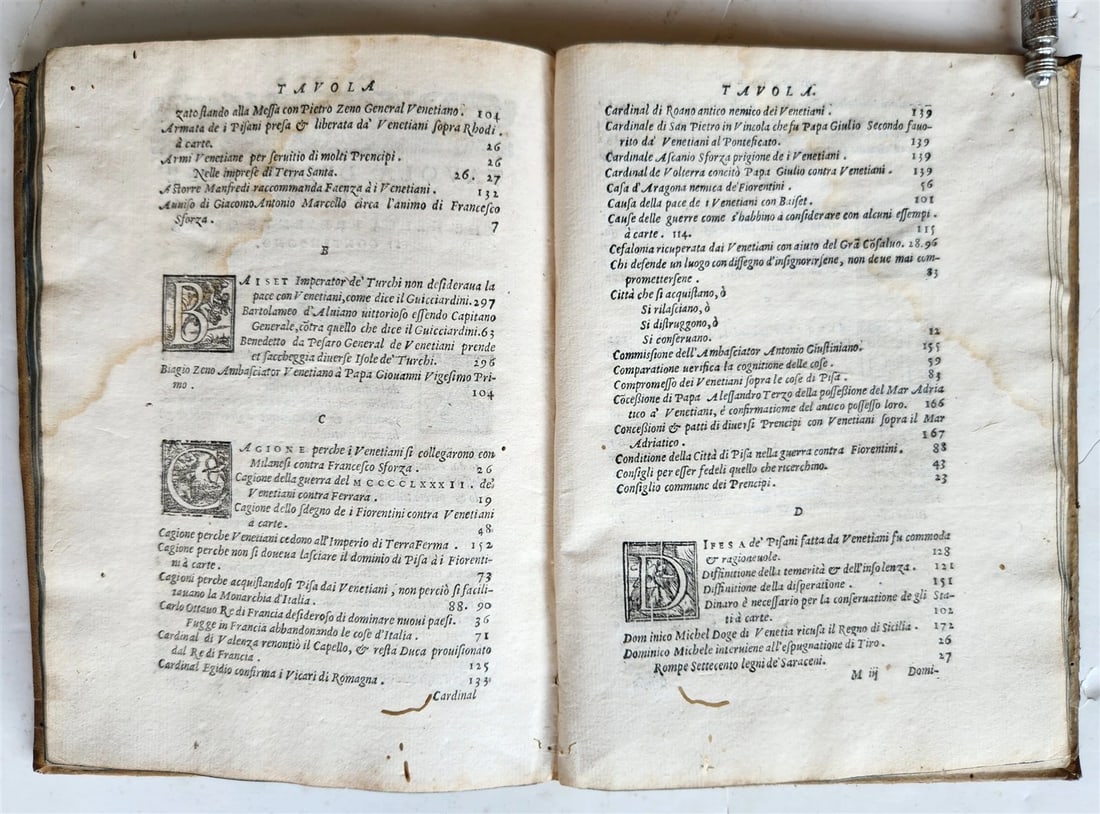 TAVOLA
zato stando alla Messa con Pietro Zeno General Venetiano. 104
Armata de i Pisani presa & liberata da' Venetiani sopra Rhodi.
à carte. 26
Armi Venetiane per seruitio di molti Prencipi. 26
Nelle imprese di Terra Santa. 26. 27
Astorre Manfredi raccommanda Faenza à i Venetiani. 132
Auuiso di Giacomo Antonio Marcello circa l'animo di Francesco
Sforza. 7
B
BAISET Imperator de' Turchi non desideraua la
pace con Venetiani, come dice il Guicciardini. 297
Bartolameo d'Aluiano uittorioso essendo Capitano
Generale, cõtra quello che dice il Guicciardini. 63
Benedetto da Pesaro General de Venetiani prende
et saccheggia diuerse Isole de' Turchi. 296
Biagio Zeno Ambasciator Venetiano à Papa Giouanni Vigesimo Pri-
mo. 104
C
CAGIONE perche i Venetiani si collegarono con
Milanesi contra Francesco Sforza. 26
Cagione della guerra del MCCCCLXXXII. de'
Venetiani contra Ferrara. 19
Cagione dello sdegno de i Fiorentini contra Venetiani
à carte. 48
Cagione perche Venetiani cedono all'Imperio di Terra Ferma. 152
Cagione perche non si doueua lasciare il dominio di Pisa à i Fiorenti-
ni à carte. 73
Cagioni perche acquistandosi Pisa dai Venetiani, non perciò si facili-
tauano la Monarchia d'Italia. 88. 90
Carlo Ottauo Re di Francia desideroso di dominare nuoui paesi. 36
Fugge in Francia abbandonando le cose d'Italia. 71
Cardinal di Valenza renontiò il Capello, & resta Duca prouisionato
dal Re di Francia. 125
Cardinal Egidio confirma i Vicari di Romagna. 133
Cardinal
TAVOLA.
Cardinal di Roano antico nemico dei Venetiani. 139
Cardinale di San Pietro in Vincola che fu Papa Giulio Secondo fauo-
rito da' Venetiani al Ponteficato. 139
Cardinale Ascanio Sforza prigione de i Venetiani. 139
Cardinal de Volterra concitò Papa Giulio contra Venetiani. 139
Casa d'Aragona nemica de' Fiorentini. 56
Causa della pace de i Venetiani con Baiset. 101
Cause delle guerre come s'habbino à considerare con alcuni essempi.
à carte. 114. 115
Cefalonia ricuperata dai Venetiani con aiuto del Grã Cõsaluo. 28.96
Chi defende un luogo con dissegno d'insignorirsene, non deue mai com-
promettersene. 83
Città che si acquistano, ò
Si rilasciano, ò
Si distruggono, ò
Si conseruano. 12
Commissione dell'Ambasciator Antonio Giustiniano. 155
Comparatione uerifica la cognitione delle cose. 59
Compromesso dei Venetiani sopra le cose di Pisa. 83
Cõcessione di Papa Alessandro Terzo della possessione del Mar Adria
tico a' Venetiani, è confirmatione del antico possesso loro. 166
Concessioni & patti di diuersi Prencipi con Venetiani sopra il Mar
Adriatico. 167
Conditione della Città di Pisa nella guerra contra Fiorentini. 88
Consigli per esser fedeli quello che ricerchino. 43
Consiglio commune dei Prencipi. 23
D
DIFESA de' Pisani fatta da Venetiani fu commoda
& ragioneuole. 128
Diffinitione della temerità & dell'insolenza. 121
Diffinitione della disperatione. 151
Dinaro è necessario per la conseruatione de gli Sta-
ti à carte. 102
Dominico Michel Doge di Venetia ricusa il Regno di Sicilia. 172
Dominico Michele interuiene all'espugnatione di Tiro. 26
Rompe Settecento legni de' Saraceni. 27
M iij Domi-